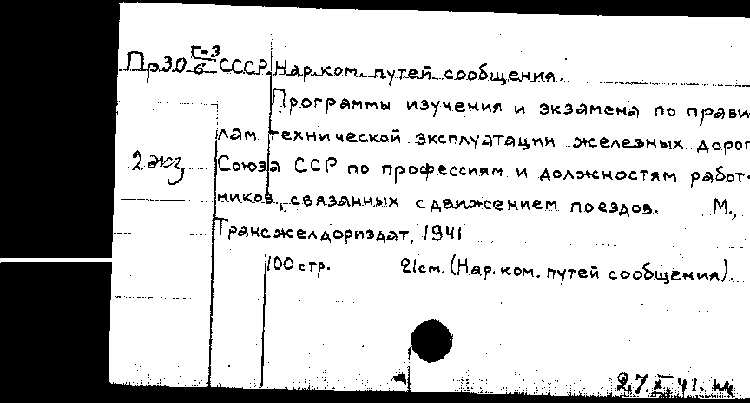 Г-3
Пр30 б СССР. Нар.ком. путей сообщения.
Программы изучения и экзамена по прави
лам технической эксплуатации железных дорог
2 экз
Союза ССР по профессиям и должностям работ-
ников, связанных с движением поездов. М.,
Трансжелдориздат, 1941
100 стр. 21см. (Нар.ком. путей сообщения).